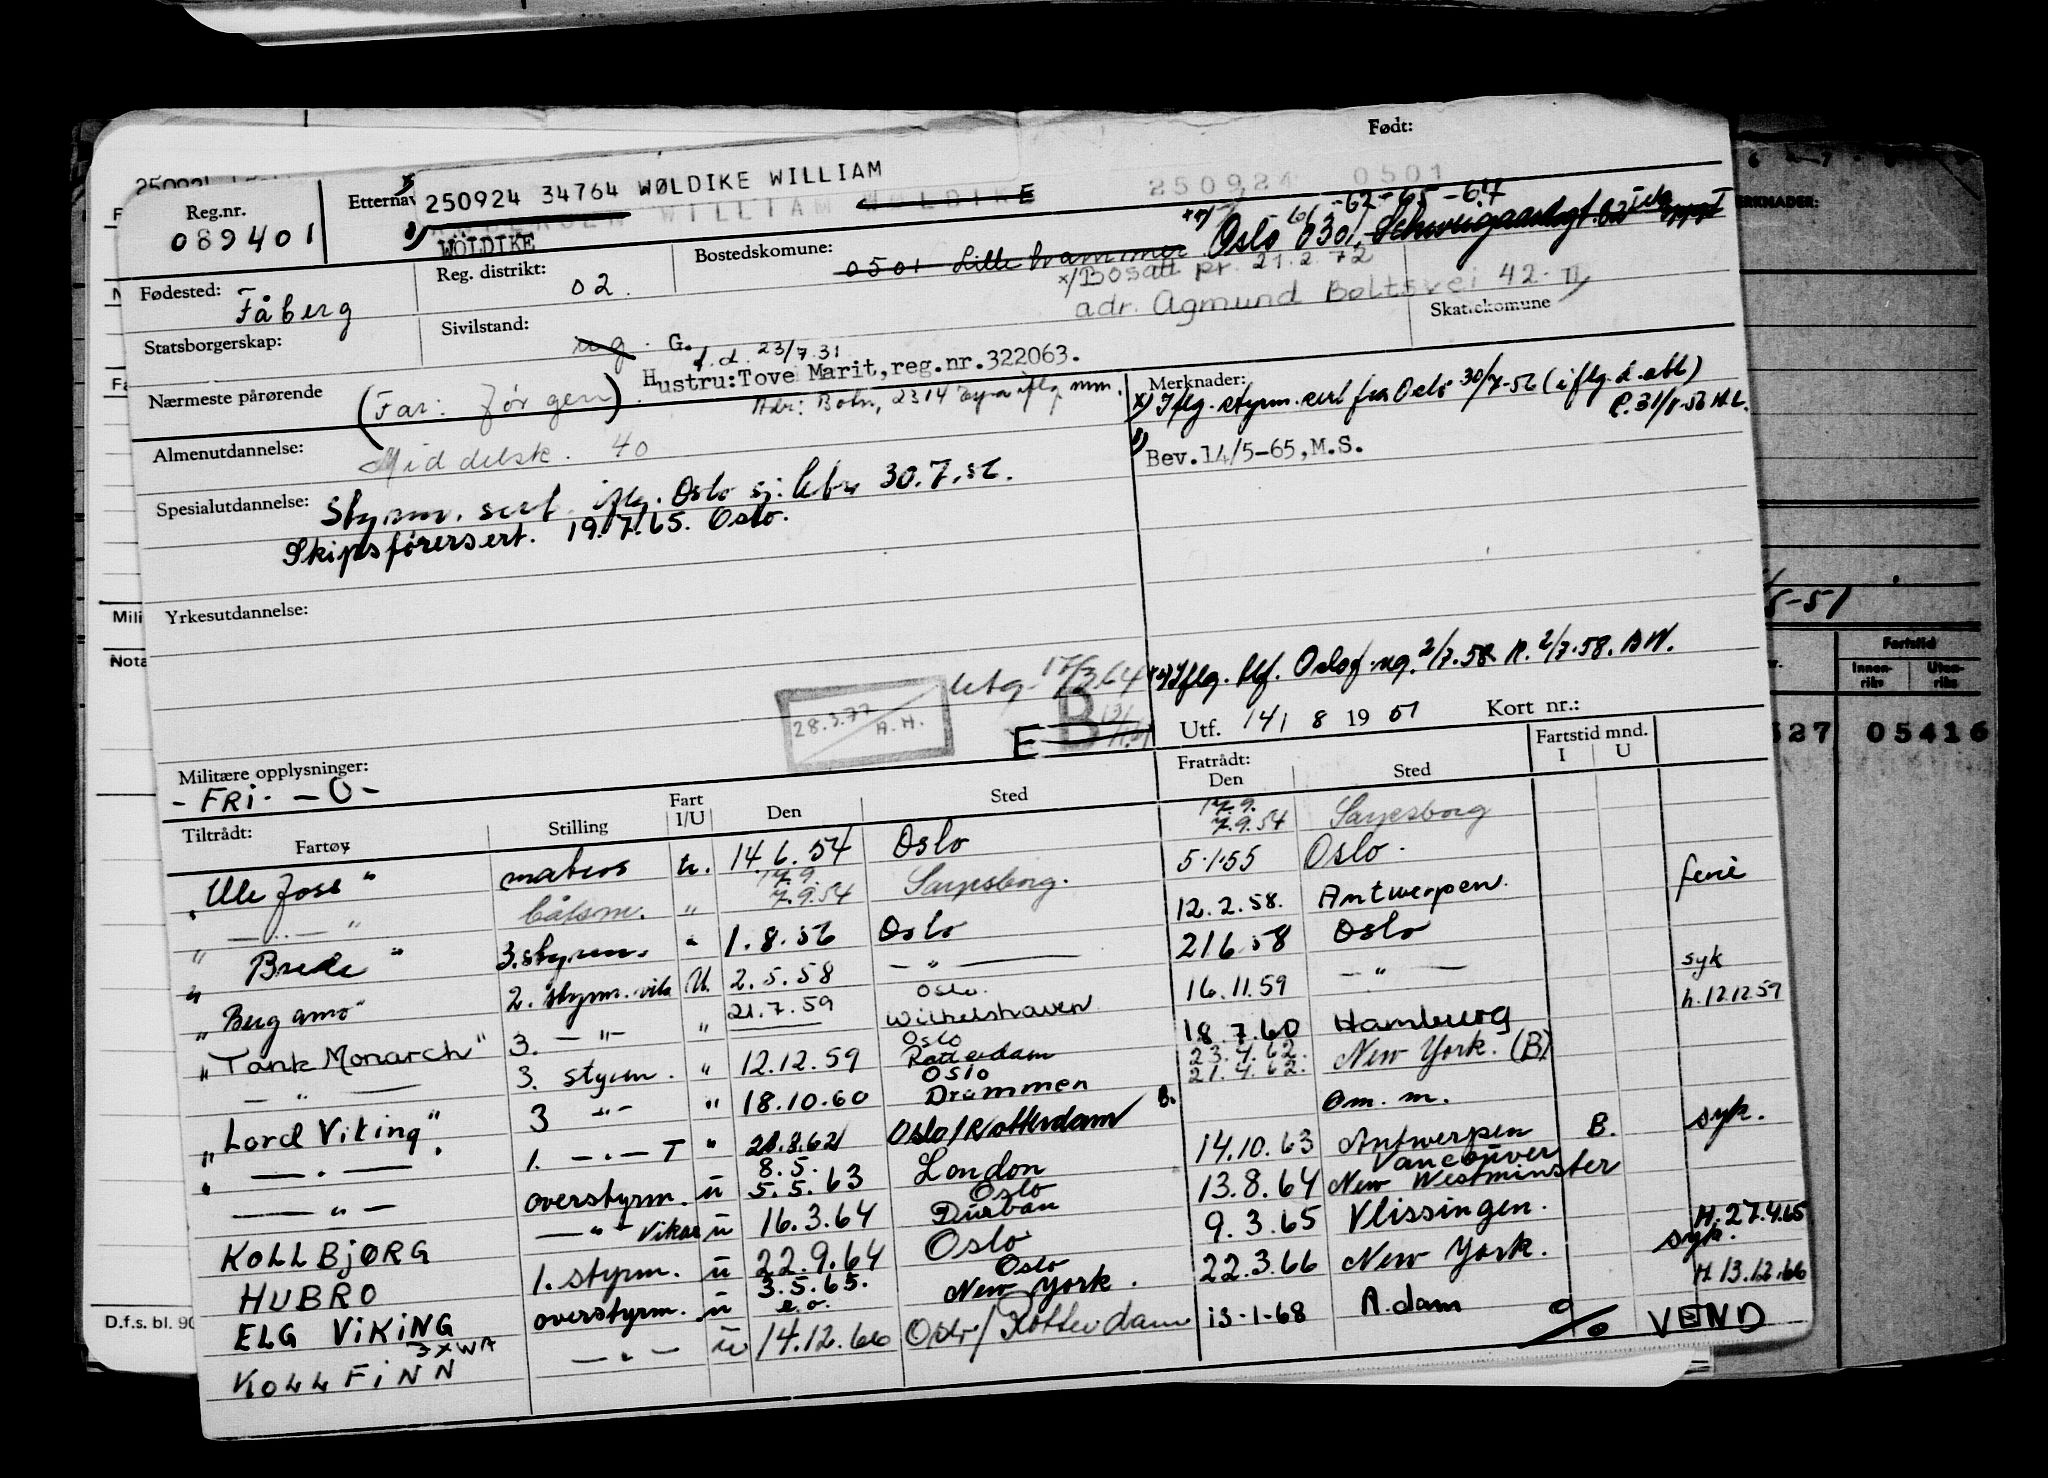 Født:
Reg.nr.
089401
Etternav
250924 34764 WØLDIKE WILLIAM
250924 0501
WILLIAM WOLDIKE
WÖLDIKE
Fødested:
Fåberg
Reg. distrikt:
02
Bostedskomune:
0501 Lillehammer
Oslo 0301,
-62-65-67
x/Bosatt pr. 21.2.72
adr. Agmund Boltsvei 42 II
Statsborgerskap:
Sivilstand:
ug. G.
Skattekomune
f. d. 23/7.31
Nærmeste pårørende
(Far: Jørgen)
Hustru:Tove Marit,reg.nr.322063.
Merknader:
x) Iflg. styrm. sert fra Oslo 30/7-56 (iflg. d. abl)
Almenutdannelse:
Middelsk. 40
1)
Bev.14/5-65,M.S.
Spesialutdannelse:
Styrm. sert. iflg. Oslo sj. 30.7.56.
Skipsførersert. 19.7.65. Oslo.
Yrkesutdannelse:
Iflg. Oslo 2/7.58 2/7.58.
utg. 17/3 64
28.3.77
A.H.
E B
Utf. 14/ 8 1951
Kort nr.:
Militære opplysninger:
- FRI - - O -
Fratrådt:
Fartstid mnd.
Tiltrådt:
Fartøy
Stilling
Fart I/U
Den
Sted
Den
Sted
I U
17.9.
7.9.54 Sarpsborg
"Ule Foss" matros u. 14.6.54 Oslo 5.1.55 Oslo.
— " — båtsm. " 17.9. 7.9.54 Sarpsborg. 12.2.58. Antwerpen. ferie
" Brede " 3.styrm. " 1.8.56 Oslo 21658 Oslo
" Bergamo" 2. styrm. vik U. 2.5.58 — " — 16.11.59 — " — syk
"Tank Monarch" 3. — " — " 21.7.59 Oslo. Wilhelshaven 18.7.60 Hamburg h. 12.12.59
— " — 3. styrm. " 12.12.59 Oslo Rotterdam 23.4.62. 21.4.62. New York. (B)
"Lord Viking" 3 — " — " 18.10.60 Oslo Drammen Om. m.
— " — 1. — " — T " 21.8.62 Oslo/Rotterdam B. 14.10.63 Antwerpen B. syk.
— " — overstyrm. u 8.5. 5.5.63 London 13.8.64 Vancouver New Westminster
KOLLBJØRG — " — Vikar u 16.3.64 Oslo Durban 9.3.65 Vlissingen.
HUBRO 1. styrm. u 22.9.64 Oslo 22.3.66 New York. H. 27.4.65 syk.
ELG VIKING overstyrm. u 3.5.65. Oslo New York. 13-1-68 A.dam H 13.12.66
KOLLFINN — " — u 14.12.66 Oslo/Rotterdam
VEND
D.f.s. bl. 90
Mili
Nota
5-51
Fartstid
Innen-riks
Uten-riks
527
05416